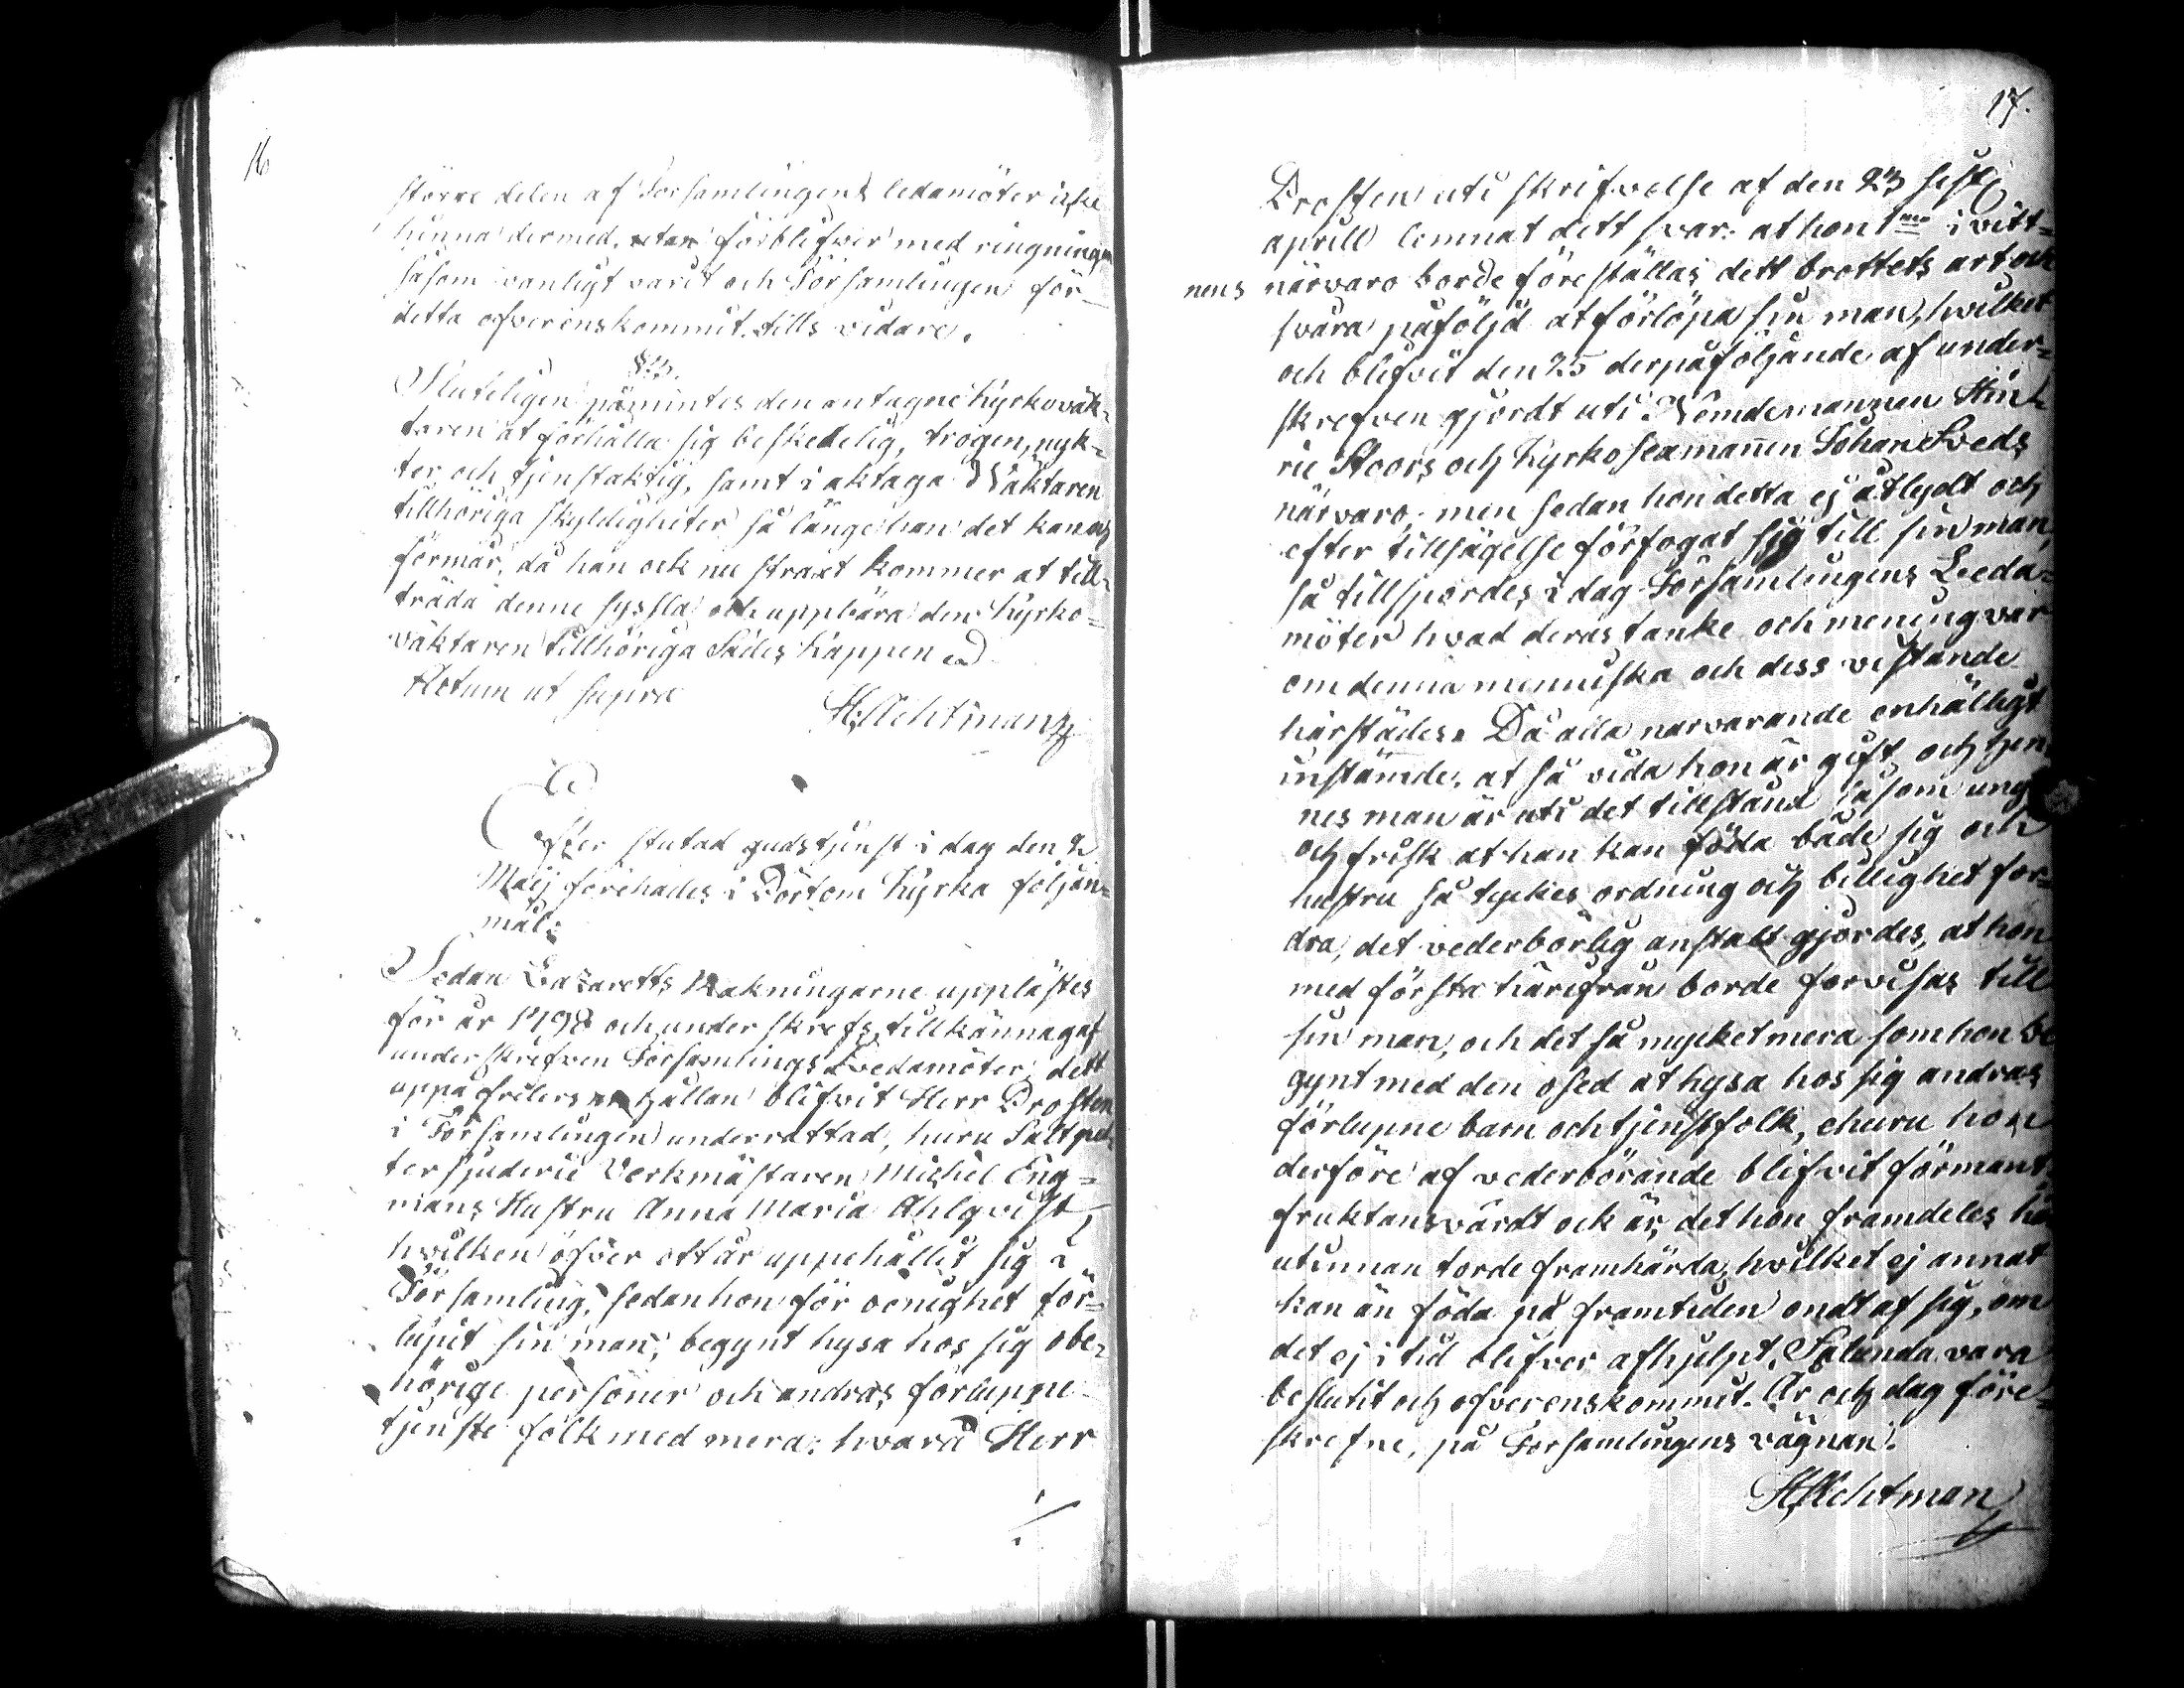 16
större delen af Församlingens ledamöter icke
hinna dermed, utan förblifver med ringningen
såsom vanligt varit och Församlingen för
detta öfverenskommit tills vidare.
§ 3.
Sluteligen påmintes den antagne kyrkoväk-
taren at förhålla sig beskedelig, trogen, nyk-
ter och tjenstaktig, samt i akttaga Wäktaren
tillhöriga skyldigheter så länge han det kan och
förmår, då han ock nu straxt kommer at till-
träda denne syssla och uppbära den Kyrko-
väktaren tillhöriga Sädes kappen
Actum ut supra
H: Achtman
Efter slutad gudstjenst i dag den 2
Maij förehades i Pörtom Kyrka följan-
mål:
Sedan Lazaretts Räkningarne upplästes
för år 1798 och underskrefs, tillkännagaf
underskrefven Församlings Ledamöter, dett
uppå frälersmans hållan blifvit Herr Prosten
i Församlingen underrättad, huru Saltpet-
tersjuderie Verkmästaren Michel Eng-
mans Hustru Anna Maria Ahlqvist,
hvilken öfver ett år uppehållit sig i
Församling, sedan hon för oenighet för-
lupit sin man, begynt hysa hos sig obe-
hörige personer och andras förlupne
tjenste folk med mera; hvarå Herr
17.
Prosten uti skrifvelse af den 23 sistl.
aprill lemnat dett svar: at hon 1mo i vitt-
nens närvaro borde föreställas dett brottets art och
svåra påföljd at förlöpa sin man, hvilket
och blifvit den 25 derpåföljande af under-
skrefven gjordt uti Nämdemannen Hink-
ric Stoors och Kyrkosexmannen Johan Sveds
närvaro; men sedan hon detta ej åtlydt och
efter tillsägelse förfogat sig till sin man,
så tillspordes i dag Församlingens Leda-
möter hvad deras tanke och mening var
om denna menniska och dess vistande
härstädes. Då alla närvarande enhälligt
instämde, at så vida hon är gift och hen-
nes man är uti det tillstånd såsom ung
och frisk at han kan föda både sig och
hustru så tyckes ordning och billighet for-
dra, det vederbörlig anstalt gjordes, at hon
med första härifrån borde förvisas till
sin man, och det så mycket mera som hon be
gynt med den osed at hysa hos sig andras
förlupne barn och tjenstfolk, ehuru hon
derföre af vederbörande blifvit förmant,
fruktansvärdt ock är, det hon framdeles här
utinnan torde framhärda, hvilket ej annat
kan än föda på framtiden ondt af sig, om
det ej i tid blifver afhjelpt. Sålunda vara
beslutit och öfverenskommit. År och dag före-
skrefne, på Församlingens vägnar.
H: Achtman